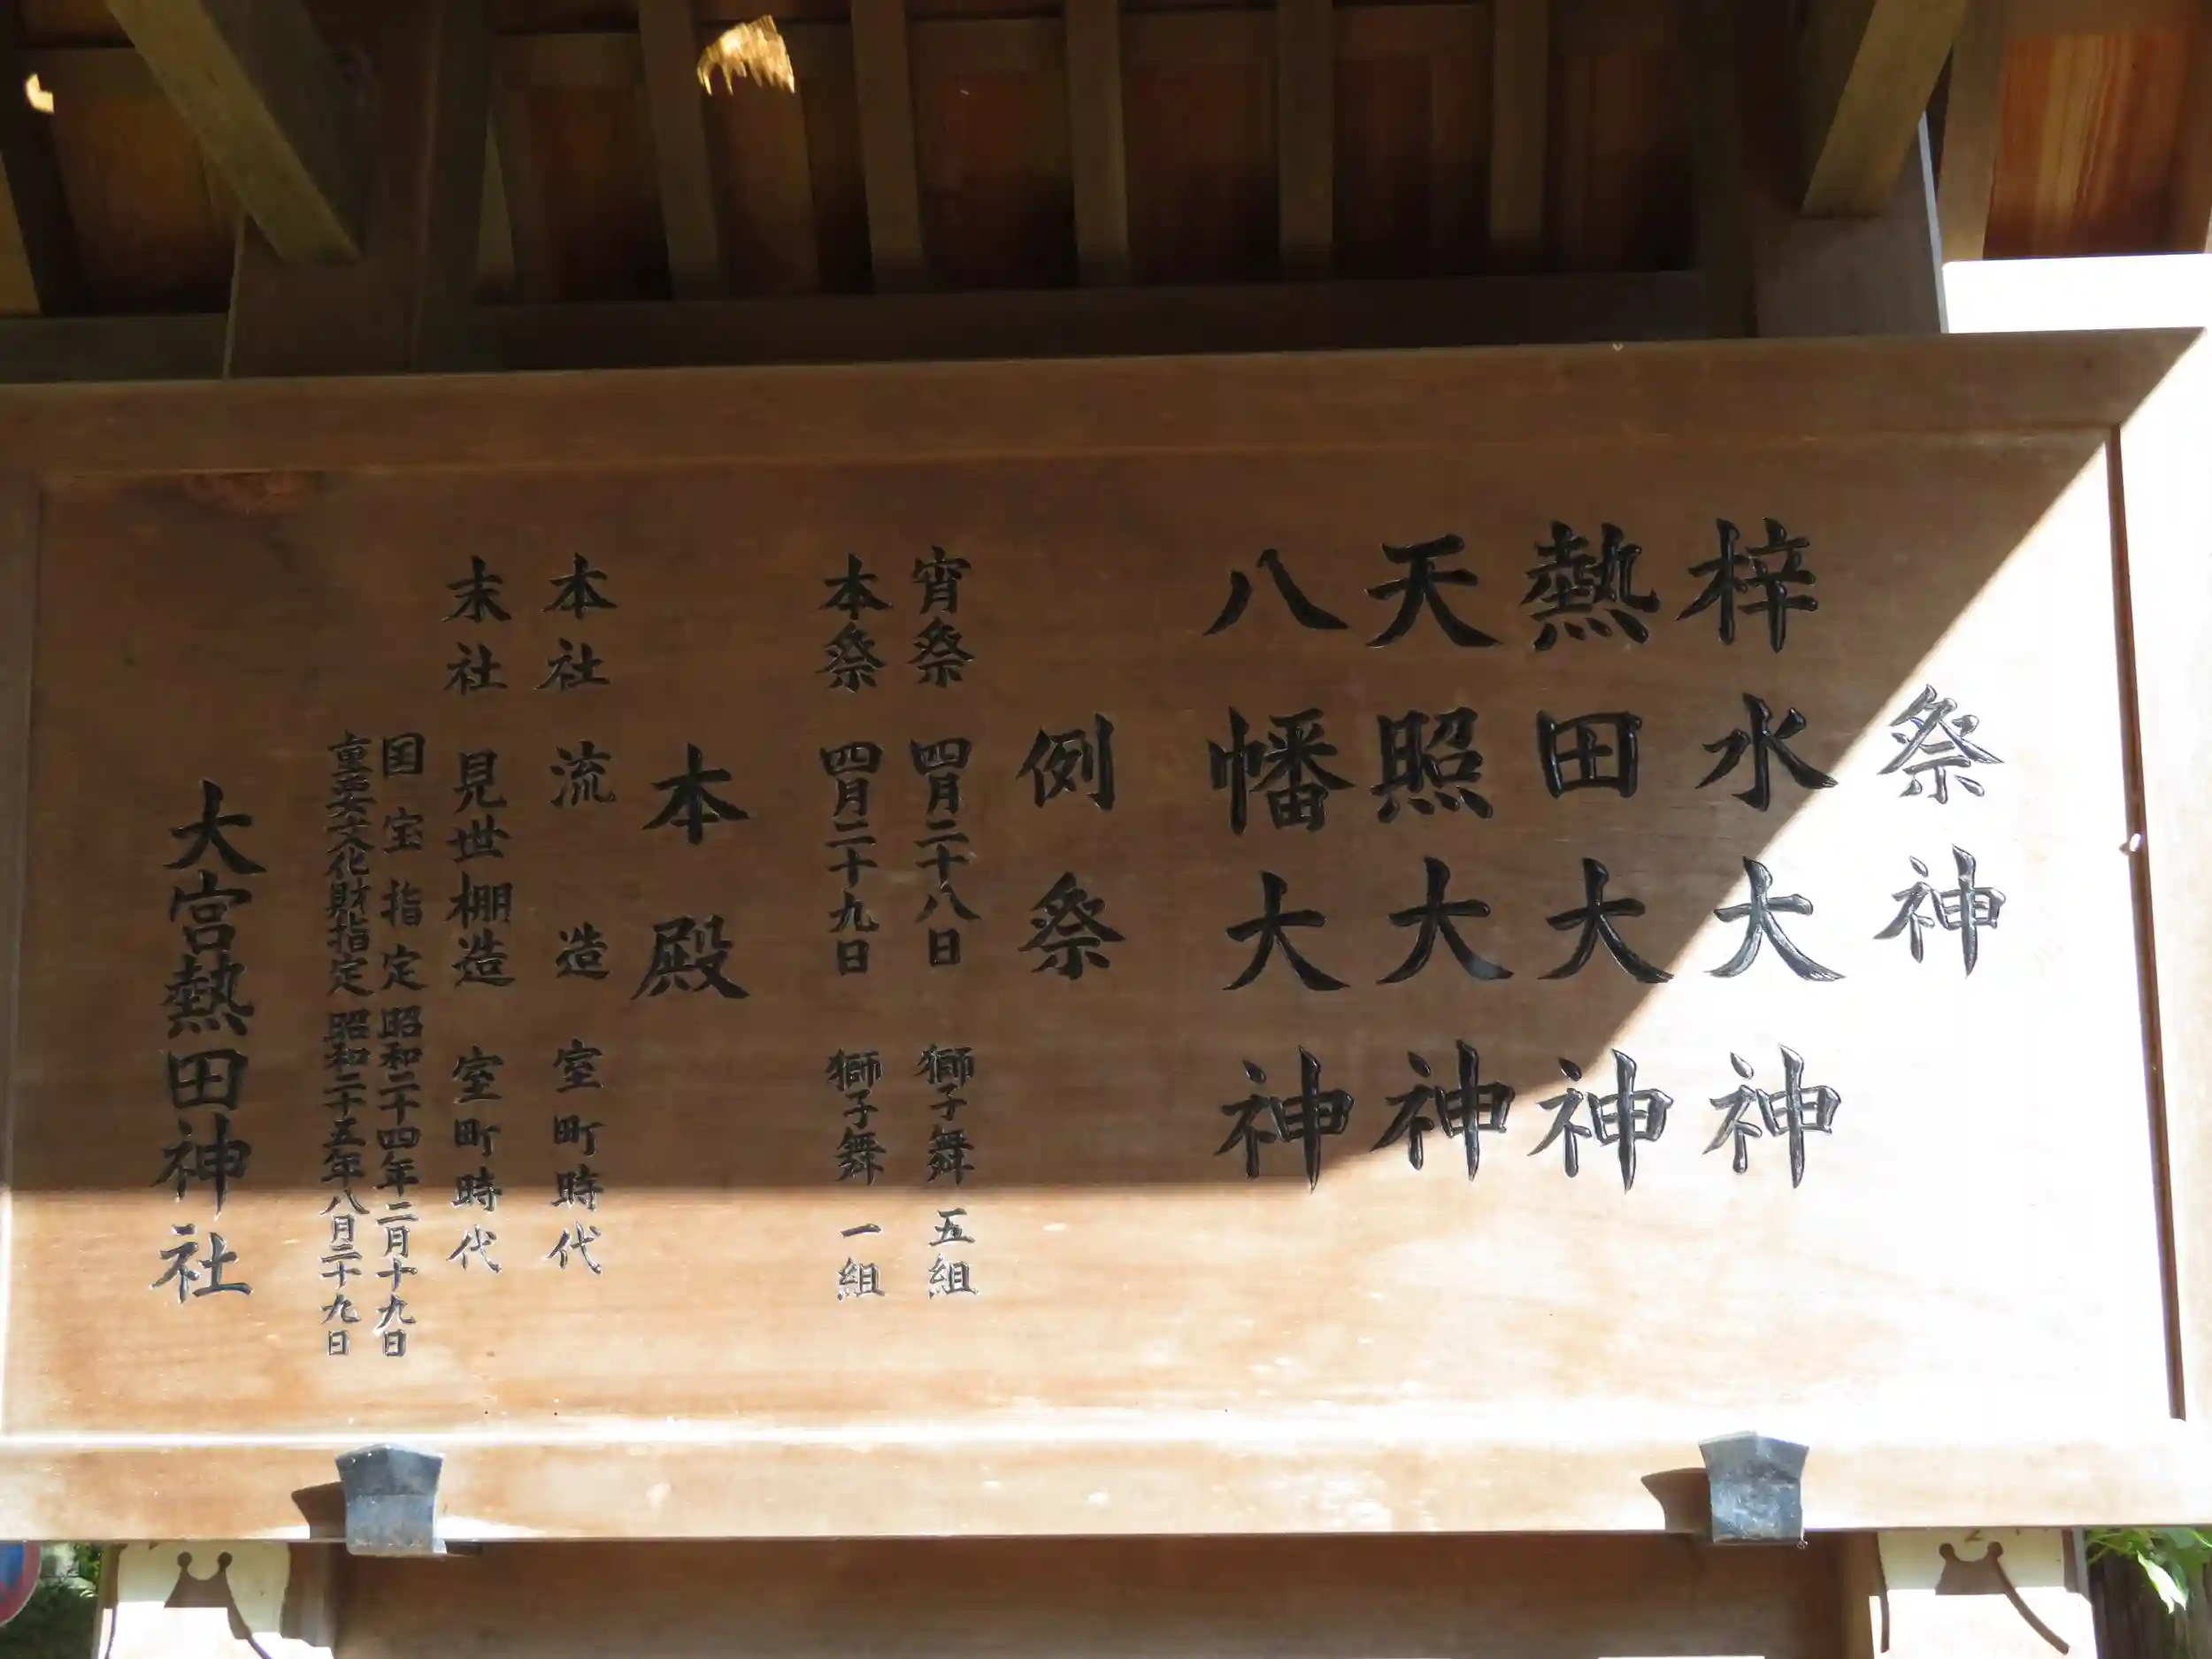 祭神
梓水大神
熱田大神
天照大神
八幡大神
例祭
宵祭 四月二十八日 獅子舞 五組
本祭 四月二十九日 獅子舞 一組
本殿
本社 流造 室町時代
末社 見世棚造 室町時代
国宝指定 昭和二十四年二月十九日
重要文化財指定 昭和二十五年八月二十九日
大宮熱田神社